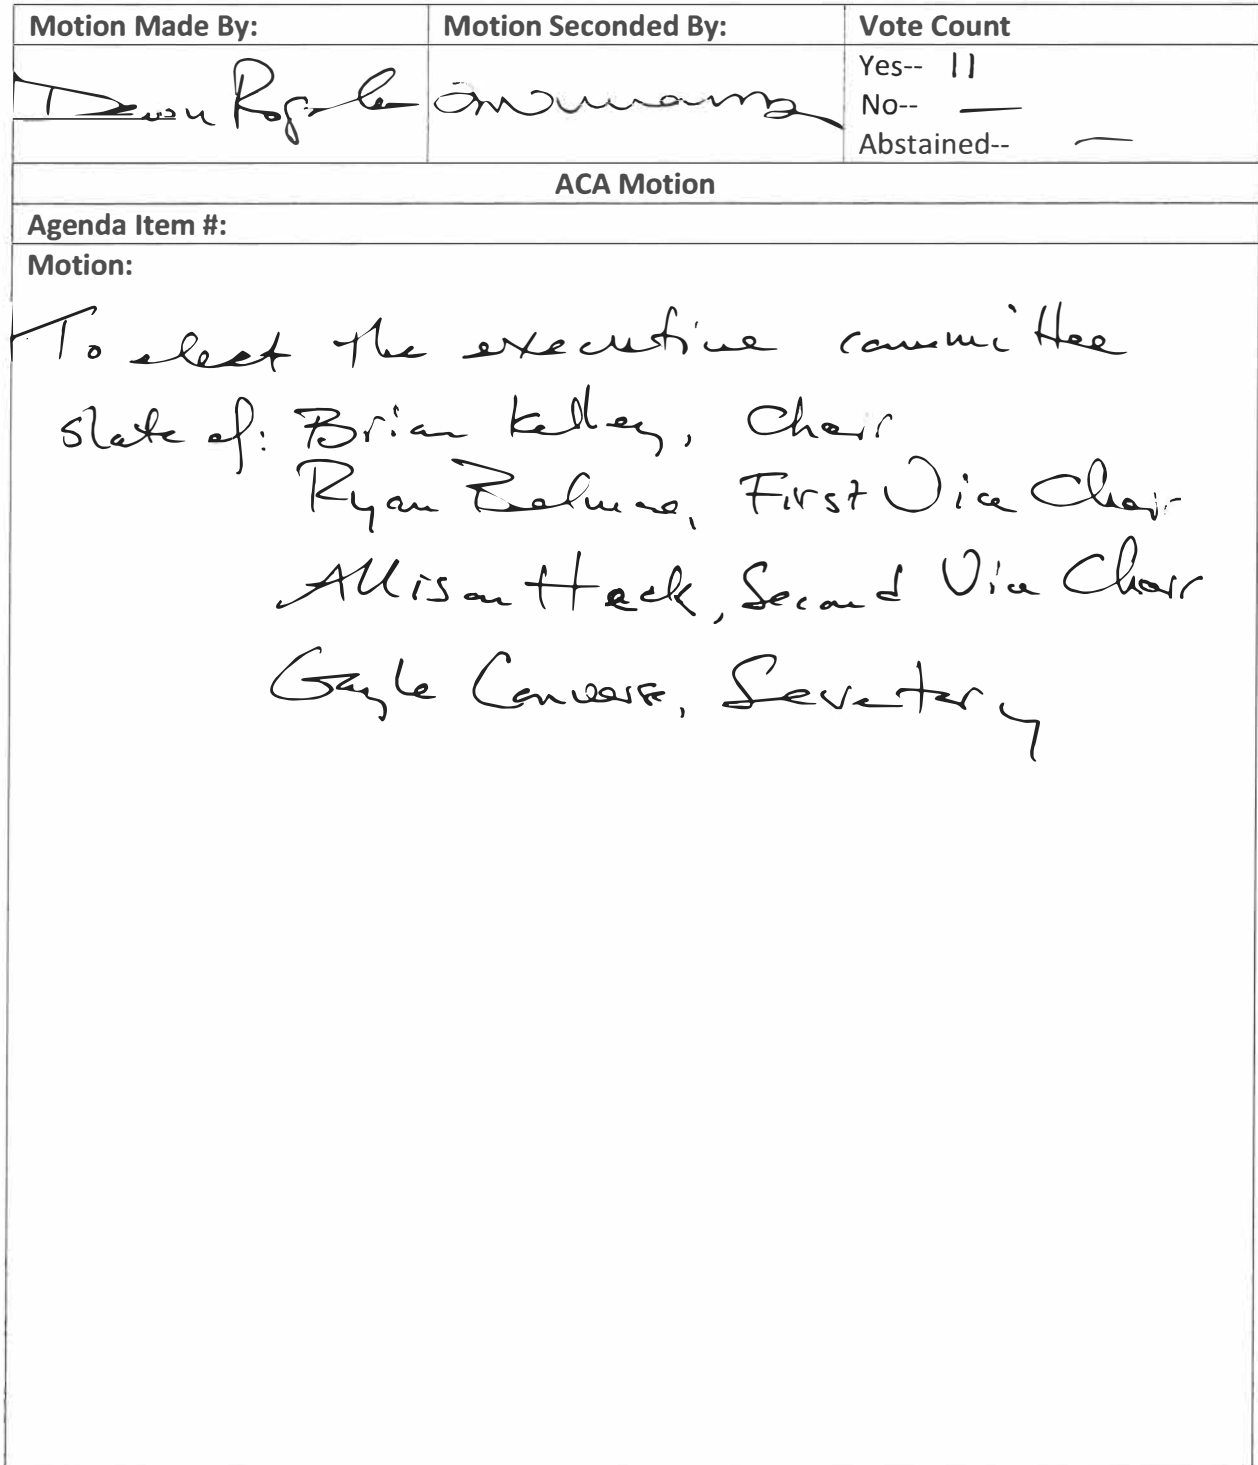 Motion Made By: Motion Seconded By: Vote Count
Yes-- 11
No-- —
Abstained-- —
ACA Motion
Agenda Item #:
Motion:
To elect the executive committee
slate of: Brian Kelley, Chair
Ryan Belmore, First Vice Chair
Allison Heck, Second Vice Chair
Gayle Converse, Secretary